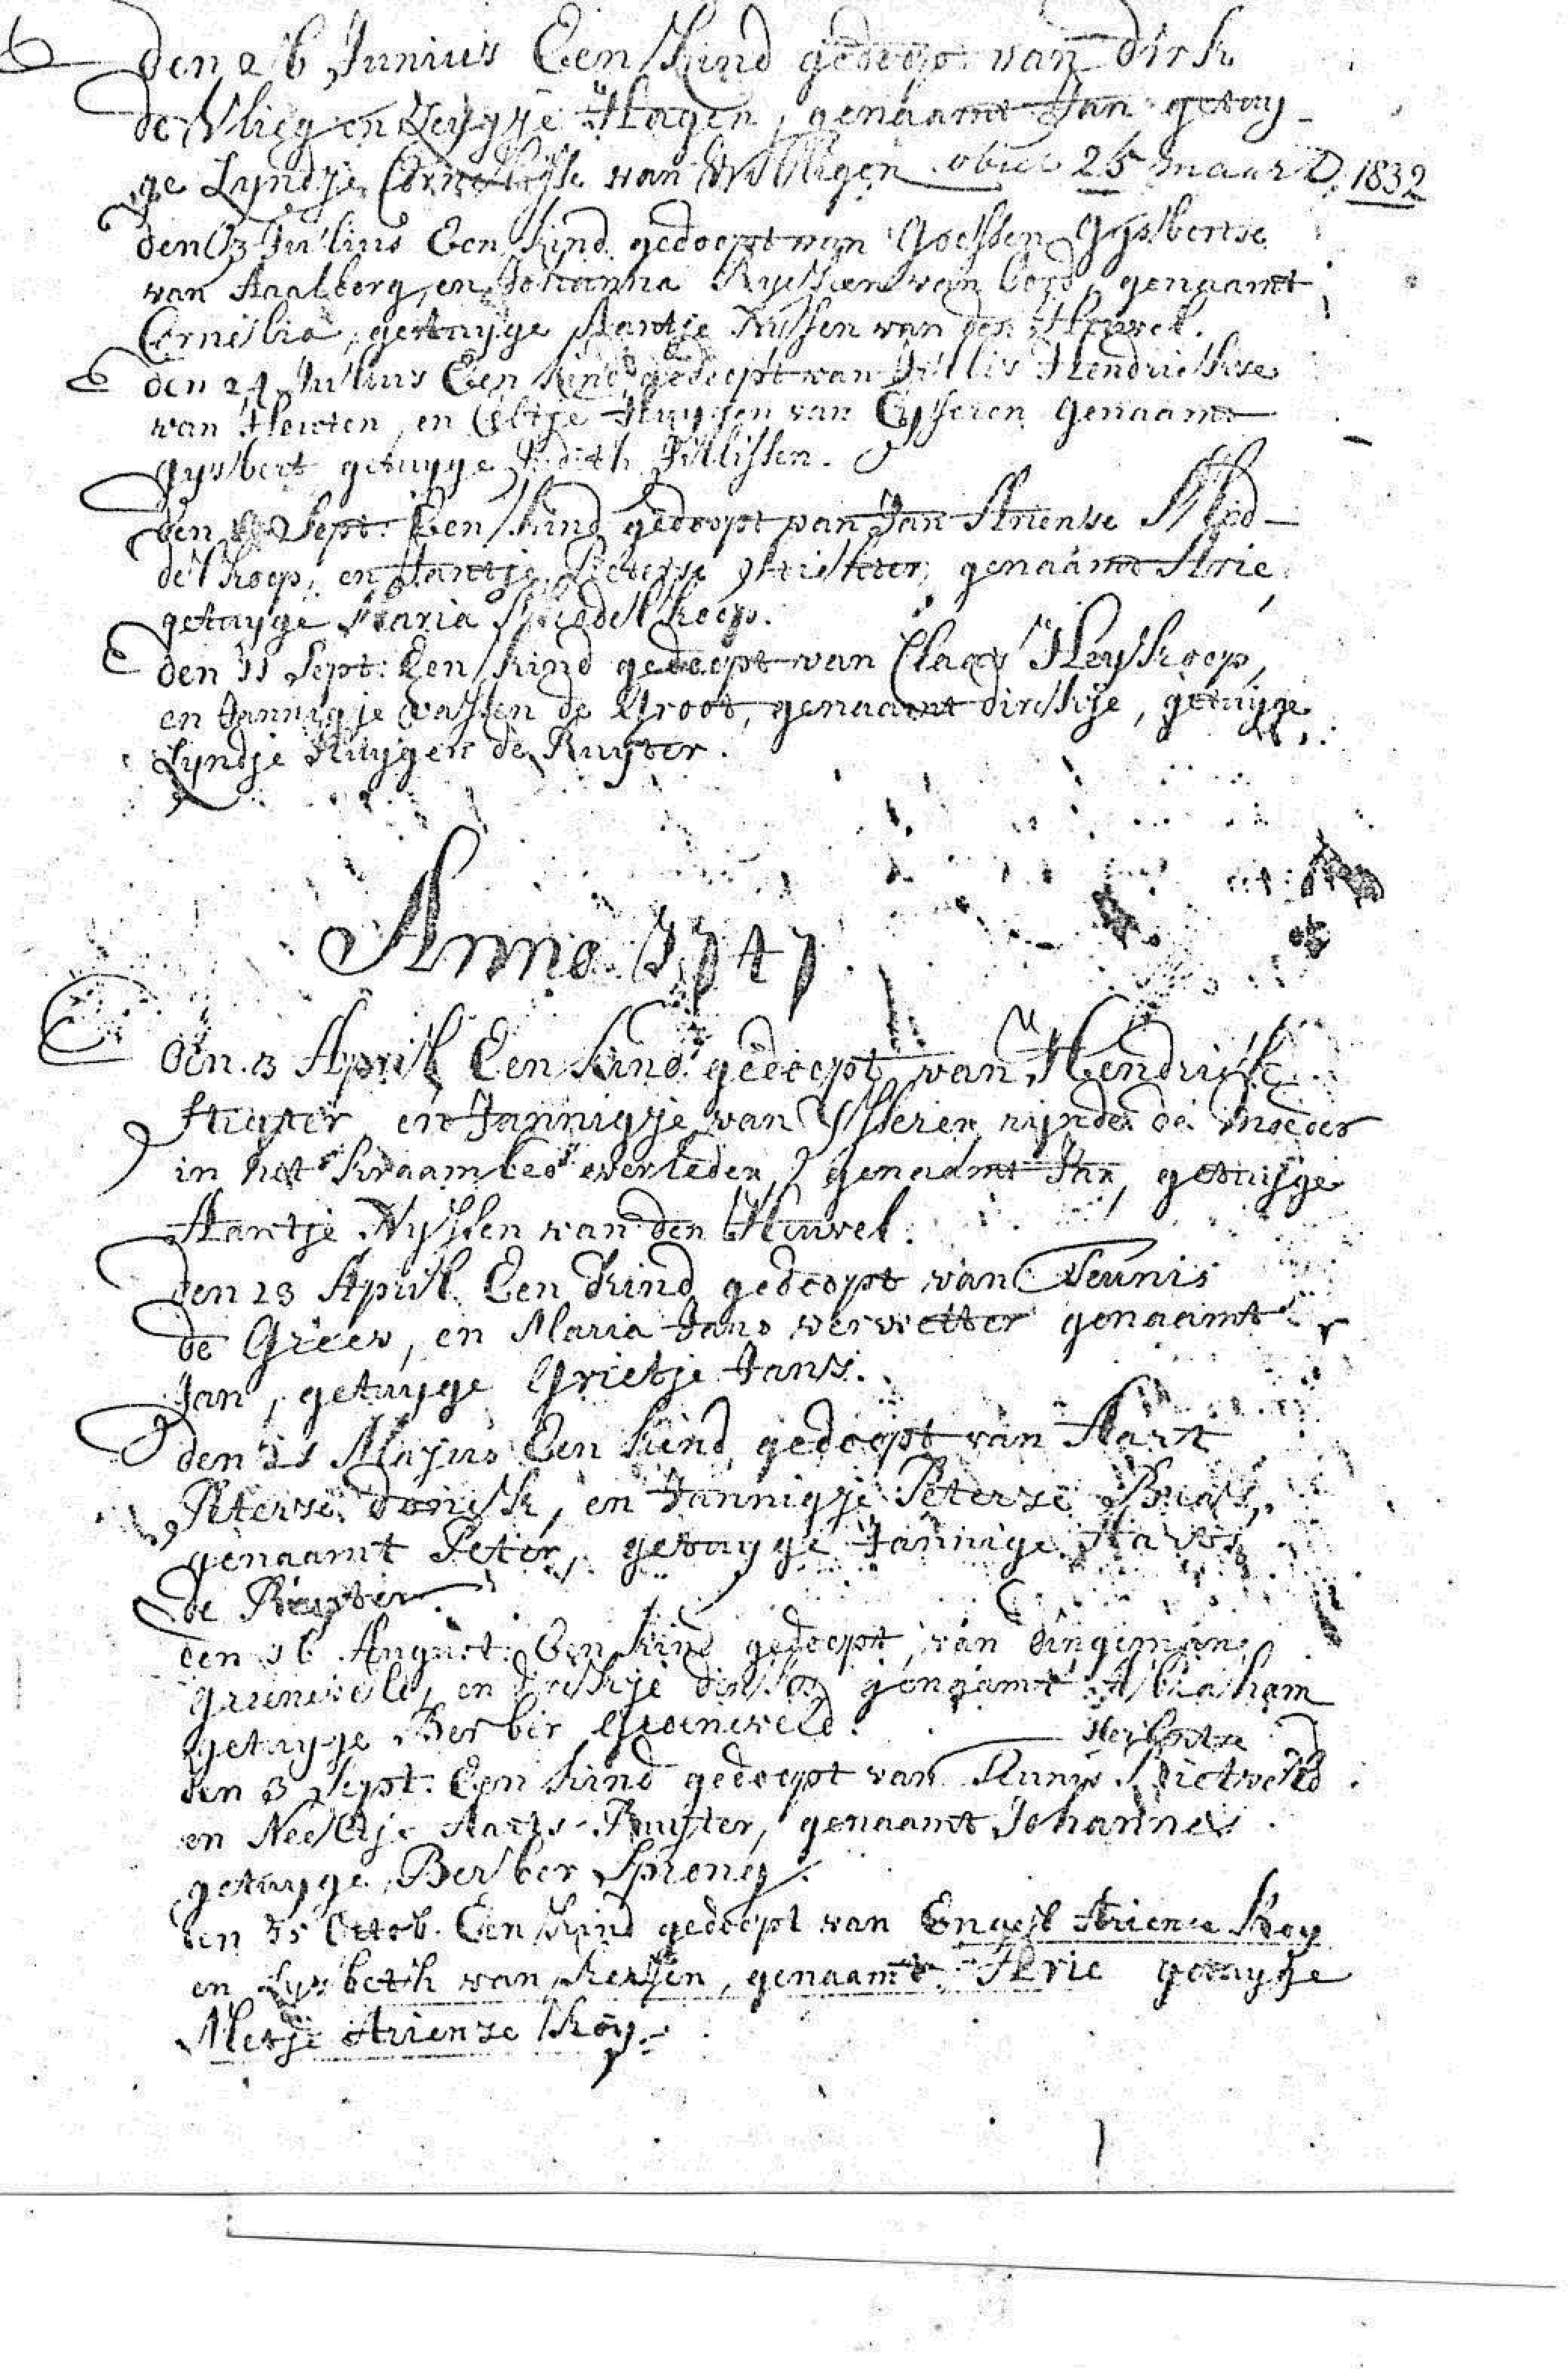 den 26 Junius Een kind gedoopt van dirk
de Vlieg en Leygje Hagen, genaamt Jan getuy-
ge Lyndje Cornelisse van Willigen obiit 25 maart 1832
den 3 Julius Een kind gedoopt van Goessen Gysbertse
van Aalberg, en Johanna van genaamt
Cornelia, getuyge Aantje Nyssen van den Heuvel.
den 24 Julius Een kind gedoopt van Jillis Hendrickse
van Houten, en Eeltje Huygen van Eysseren genaamt
Gysbert getuyge Judith Jillissen.
den Sept: Een kind gedoopt van Jan Ariense Mid-
delkoop, en Jantje Peterse genaamt Arie,
getuyge Maria Middelkoop.
den 11 Sept: Een kind gedoopt van Claas Heykoop,
en Jannigje Bassen de Groot, genaamt dirkje, getuyge
Lyndje Huygen de Ruyter.
Anno 1747
den 3 April Een kind gedoopt van Hendrick
en Jannigje van Ysseren, zijnde de moeder
in het kraambed overleden, genaamt Jan, getuyge
Aantje Nyssen van den Heuvel.
den 23 April Een kind gedoopt van Teunis
de Greev, en Maria Jans vervetter genaamt
Jan, getuyge Grietje Jans.
den 21 Mayus Een kind gedoopt van Aart
Peterse donck, en Jannigje Peterse
genaamt Peter, getuyge Jannige Aarts
de Ruyter
den 16 August: Een kind gedoopt van dingeman
Groeneveld, en dirkje genaamt Abraham
getuyge Berber Groeneveld.
Herbertse
den 3 Sept: Een kind gedoopt van Teunis Rietveld
en Neeltje Aarts Ruyter, genaamt Johannes
getuyge Berber Sprong.
den 15 Octob. Een kind gedoopt van Engel Ariense Koy
en Lysbeth van Kersen, genaamt Arie getuyge
Metje Arienze Koy.